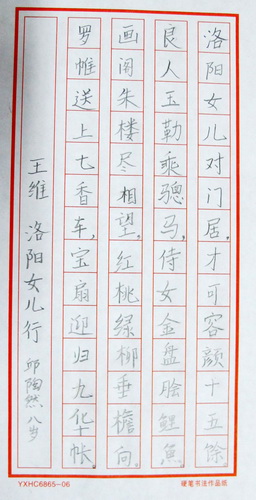 洛阳女儿对门居，才可容颜十五馀
良人玉勒乘骢马，侍女金盘脍鲤鱼。
画阁朱楼尽相望。红桃绿柳垂檐向。
罗帷送上七香车，宝扇迎归九华帐。
王维 洛阳女儿行 邱陶然 八岁
YXHC6865-06 硬笔书法作品纸